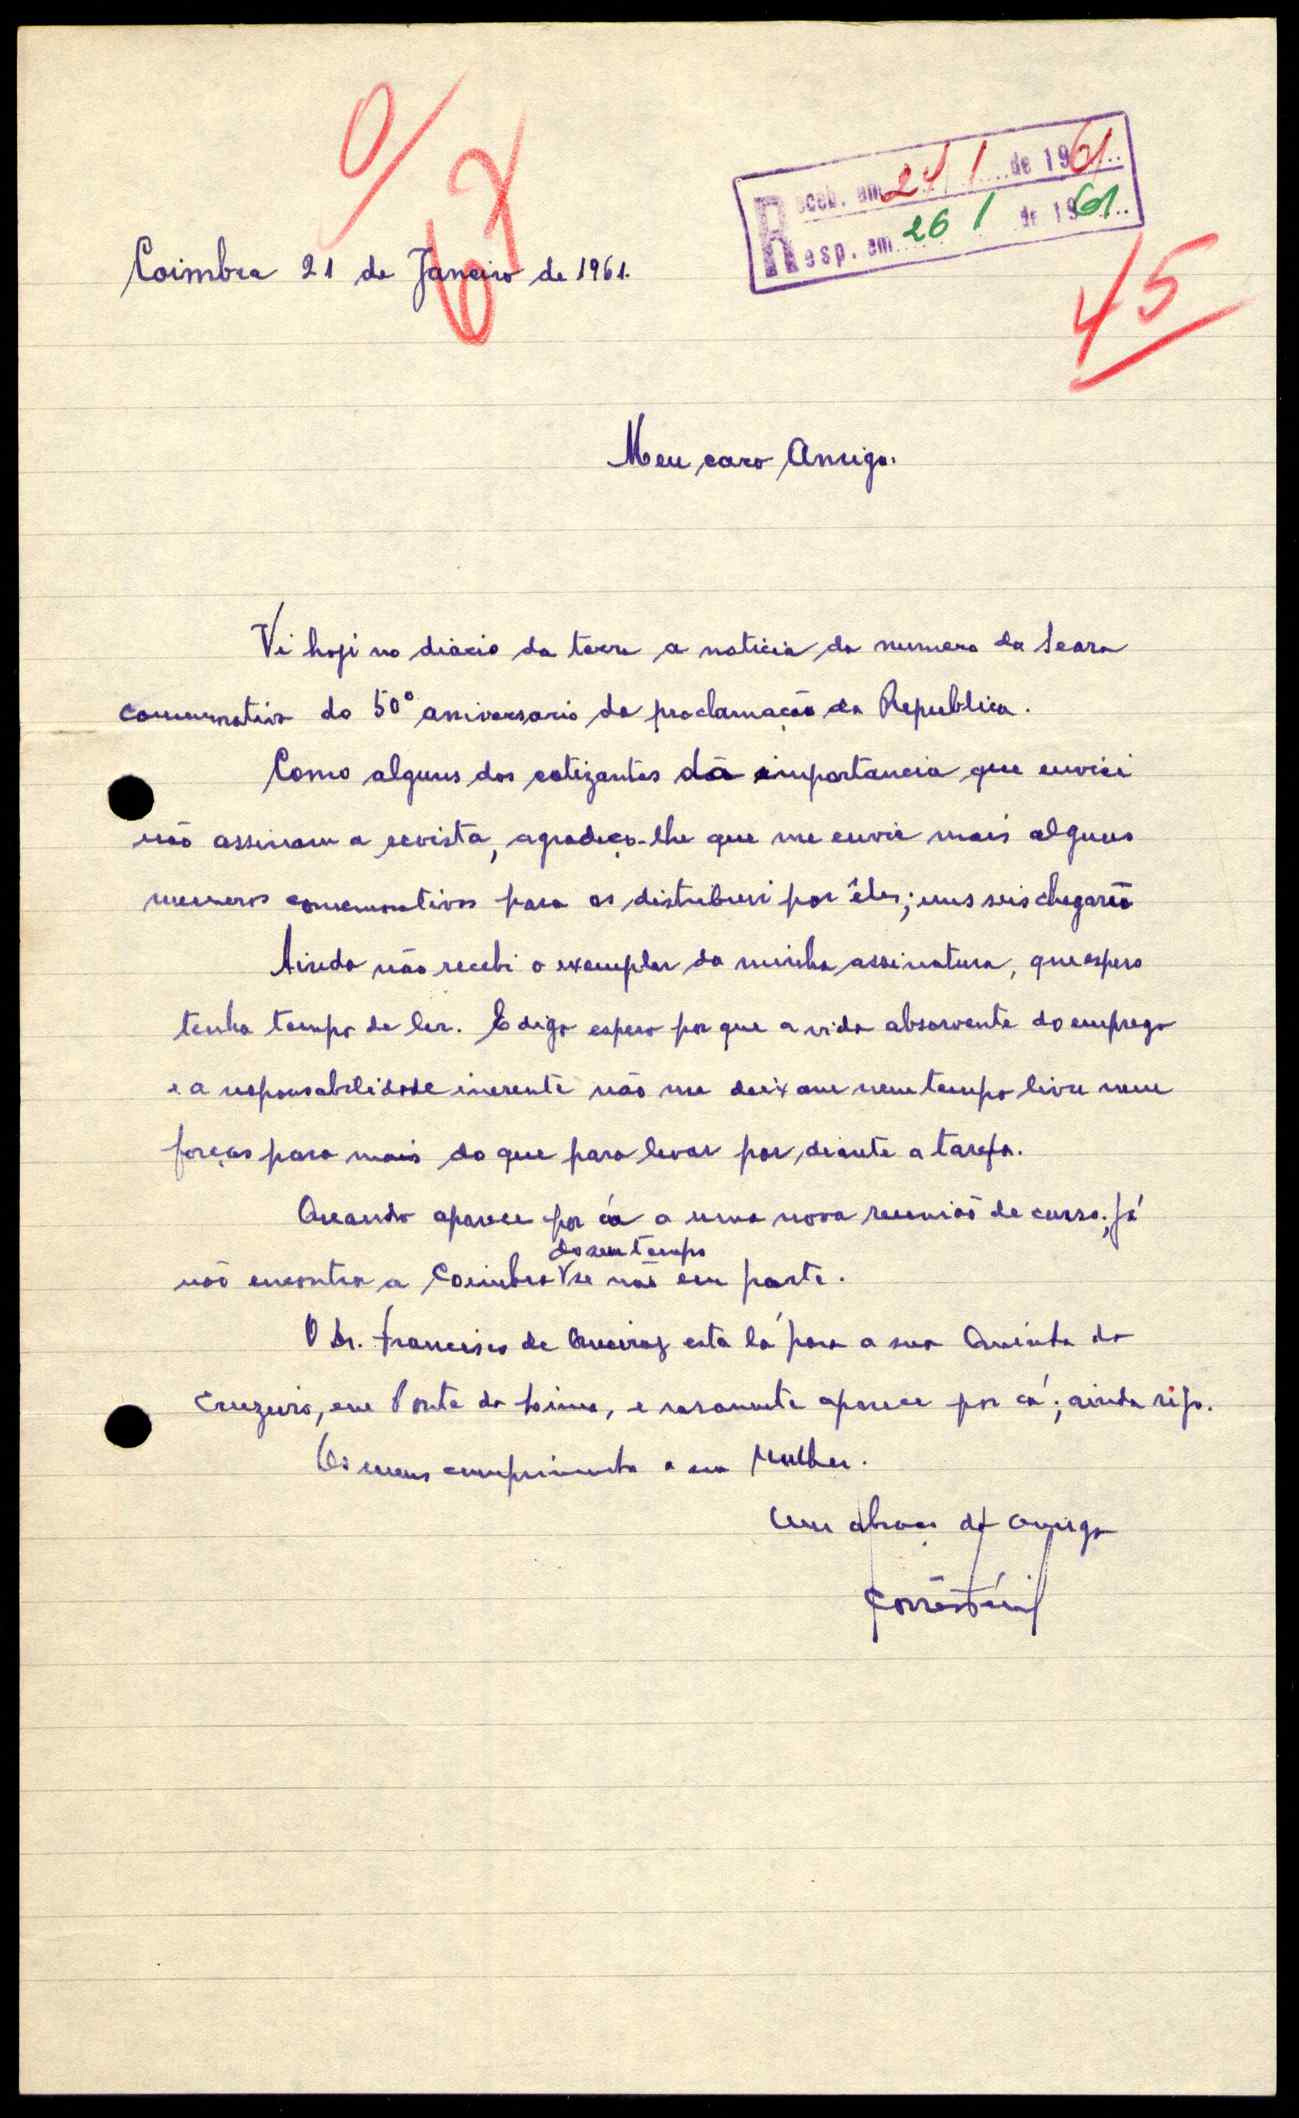 O/
67
Receb. em 24 / 1 de 1961
Resp. em 26 / 1 de 1961
45
Coimbra 21 de Janeiro de 1961.
Meu caro Amigo.
Vi hoje no diário da terra a noticia do numero da Seara
comemorativo do 50º aniversario da proclamação da Republica.
Como alguns dos cotizantes da importancia que enviei
não assinam a revista, agradeço-lhe que me envie mais alguns
numeros comemorativos para os distribuir por êles; uns seis chegarão
Ainda não recebi o exemplar da minha assinatura, que espero
tenha tempo de ler. E digo espero por que a vida absorvente do emprego
e a responsabilidade inerente não me deixam nem tempo livre nem
forças para mais do que para levar por diante a tarefa.
Quando aparece por cá a uma nova reunião de curso; já
do seu tempo
não encontra a Coimbra V se não em parte.
O Dr. Francisco de Queiroz está lá para a sua Quinta do
Cruzeiro, em Ponte do Lima, e raramente aparece por cá; ainda rijo.
Os meus cumprimentos a sua Mulher.
Um abraço do amigo